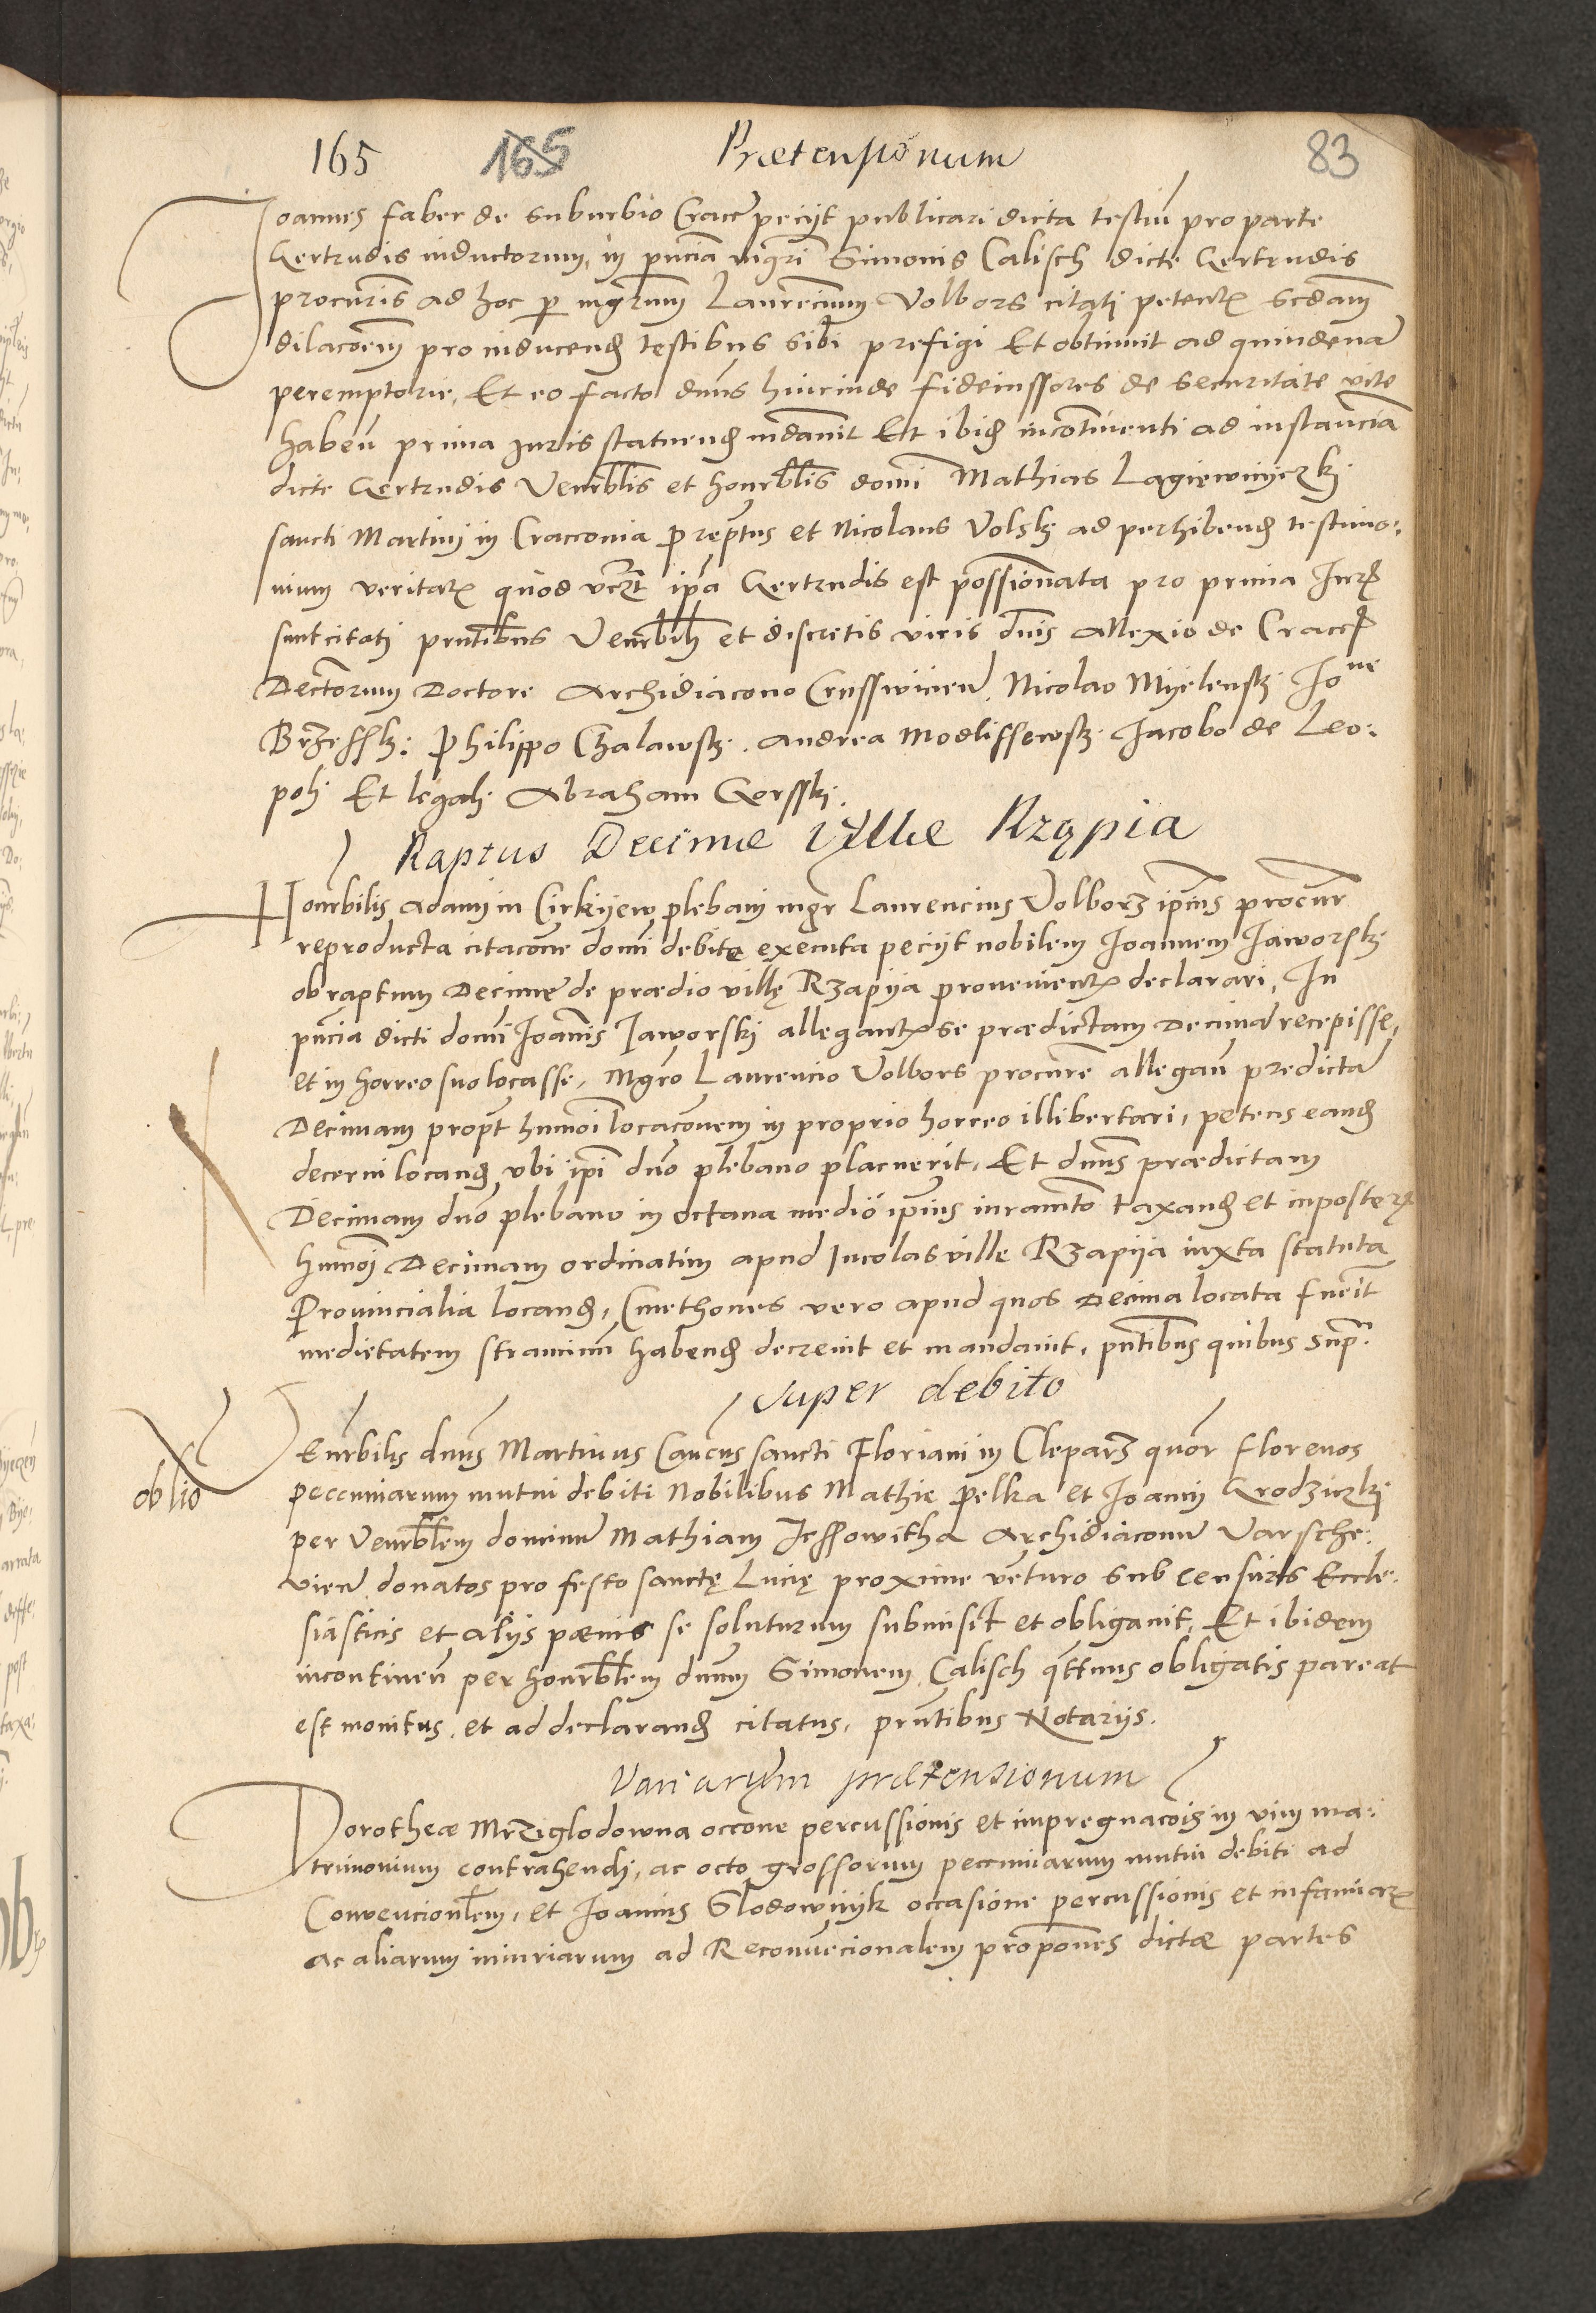 165 165 Prætensionum 83
Joannes faber de suburbio Cracc pecijt publicari dicta testiu pro parte
Gertrudis inductorum, in pncia mgri Simonis Calisch dicte Gertrudis
procuris ad hoc p mgrum Laurecium Volbors citati petent secdam
dilacoem pro inducend testibus sibi prefigi Et obtinuit ad quindena
peremptorie, Et eo facto dnus hincinde fideiussores de securitate
haben prima Juris statuend mdauit Et ibid incotinenti ad instancia
dicte Gertrudis Venrblis et honrblis domi Mathias Lagiewnyczkj
sancti Martinj in Cracconia preptus et Nicolaus Volskj ad perhibend testimo:
nium veritat quod vczt ipa Gertrudis est possionata pro prima Jur
sunt citati pntibus Venrblibz et discretis viris dnis Allexio de Cracc
Dectorum Doctore Archidiacono Crusswicien, Nicolao Myelenskj Jone
Brzesskj: Philippo Chalawskj. Andrea Modlissewskj Jacobo de Leo:
polj Et legalj Abraham Gorsskj.
Raptus Decimæ Villæ Rząpia
Honrbilis Adamj in Cirkyew plebanj mgr Laurencius Volborz ipius procur
reproducta citacone domi debite executa pecijt nobilem Joannem Jaworskj
ob raptum Decime de prædio villę Rzapija prouenient declarari, In
pncia dicti domi Joannis Jaworskj allegant se prædictam Decima recepisse,
et in horreo suo locasse, Mgro Laurencio Volbors procure allegan predicta
Decimam propt hmoi locaconem in proprio horreo illibertari, petens eand
decerni locand vbi ipi dno plebano placuerit, Et dnus prædictam
Decimam dno plebano in octaua medio ipius iuramto taxand et inposter
hmoi Decimam ordinatim apud Incolas ville Rzapija iuxta statuta
Prouincialia locand, Cmethones vero apud quos Decima locata fuerit
medietatem straminu habend decreuit et mandauit, pntibus quibus sup.
Super debito
oblio
Venrbilis dnus Martinus Canonicus sancti Floriani in Cleparz quor florenos
peccuniarum mutui debiti Nobilibus Mathie Pelka et Joannj Grodziczkj
per Venrblem dominu Mathiam Jessowitha Archidiaconu Varsche:
vien donatos pro festo sanctę Lucię proxime venturo sub censuris Eccle:
siasticis et alijs pœnis se soluturum submisit et obligauit, Et ibidem
incontinen per honrblem dnum Simonem Calisch qttnus obligatis pareat
est monitus, et ad declarand citatus, pntibus Notarijs.
Variarum prætensionum
Dorotheæ Mrziglodowna occone percussionis et impregnacois in vim ma:
trimonium contrahendj, ac octo grossorum peccuniarum mutui debiti ad
Convencionlem, et Joannis Slodownyk occasione percussionis et infamiar
ac aliarum iniuriarum ad Reconvencionalem propones dictæ partes